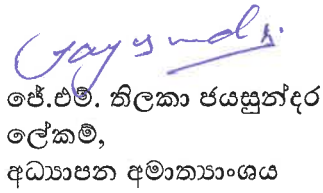 ජේ.එම්. තිලකා ජයසුන්දර
ලේකම්,
අධ්‍යාපන අමාත්‍යාංශය